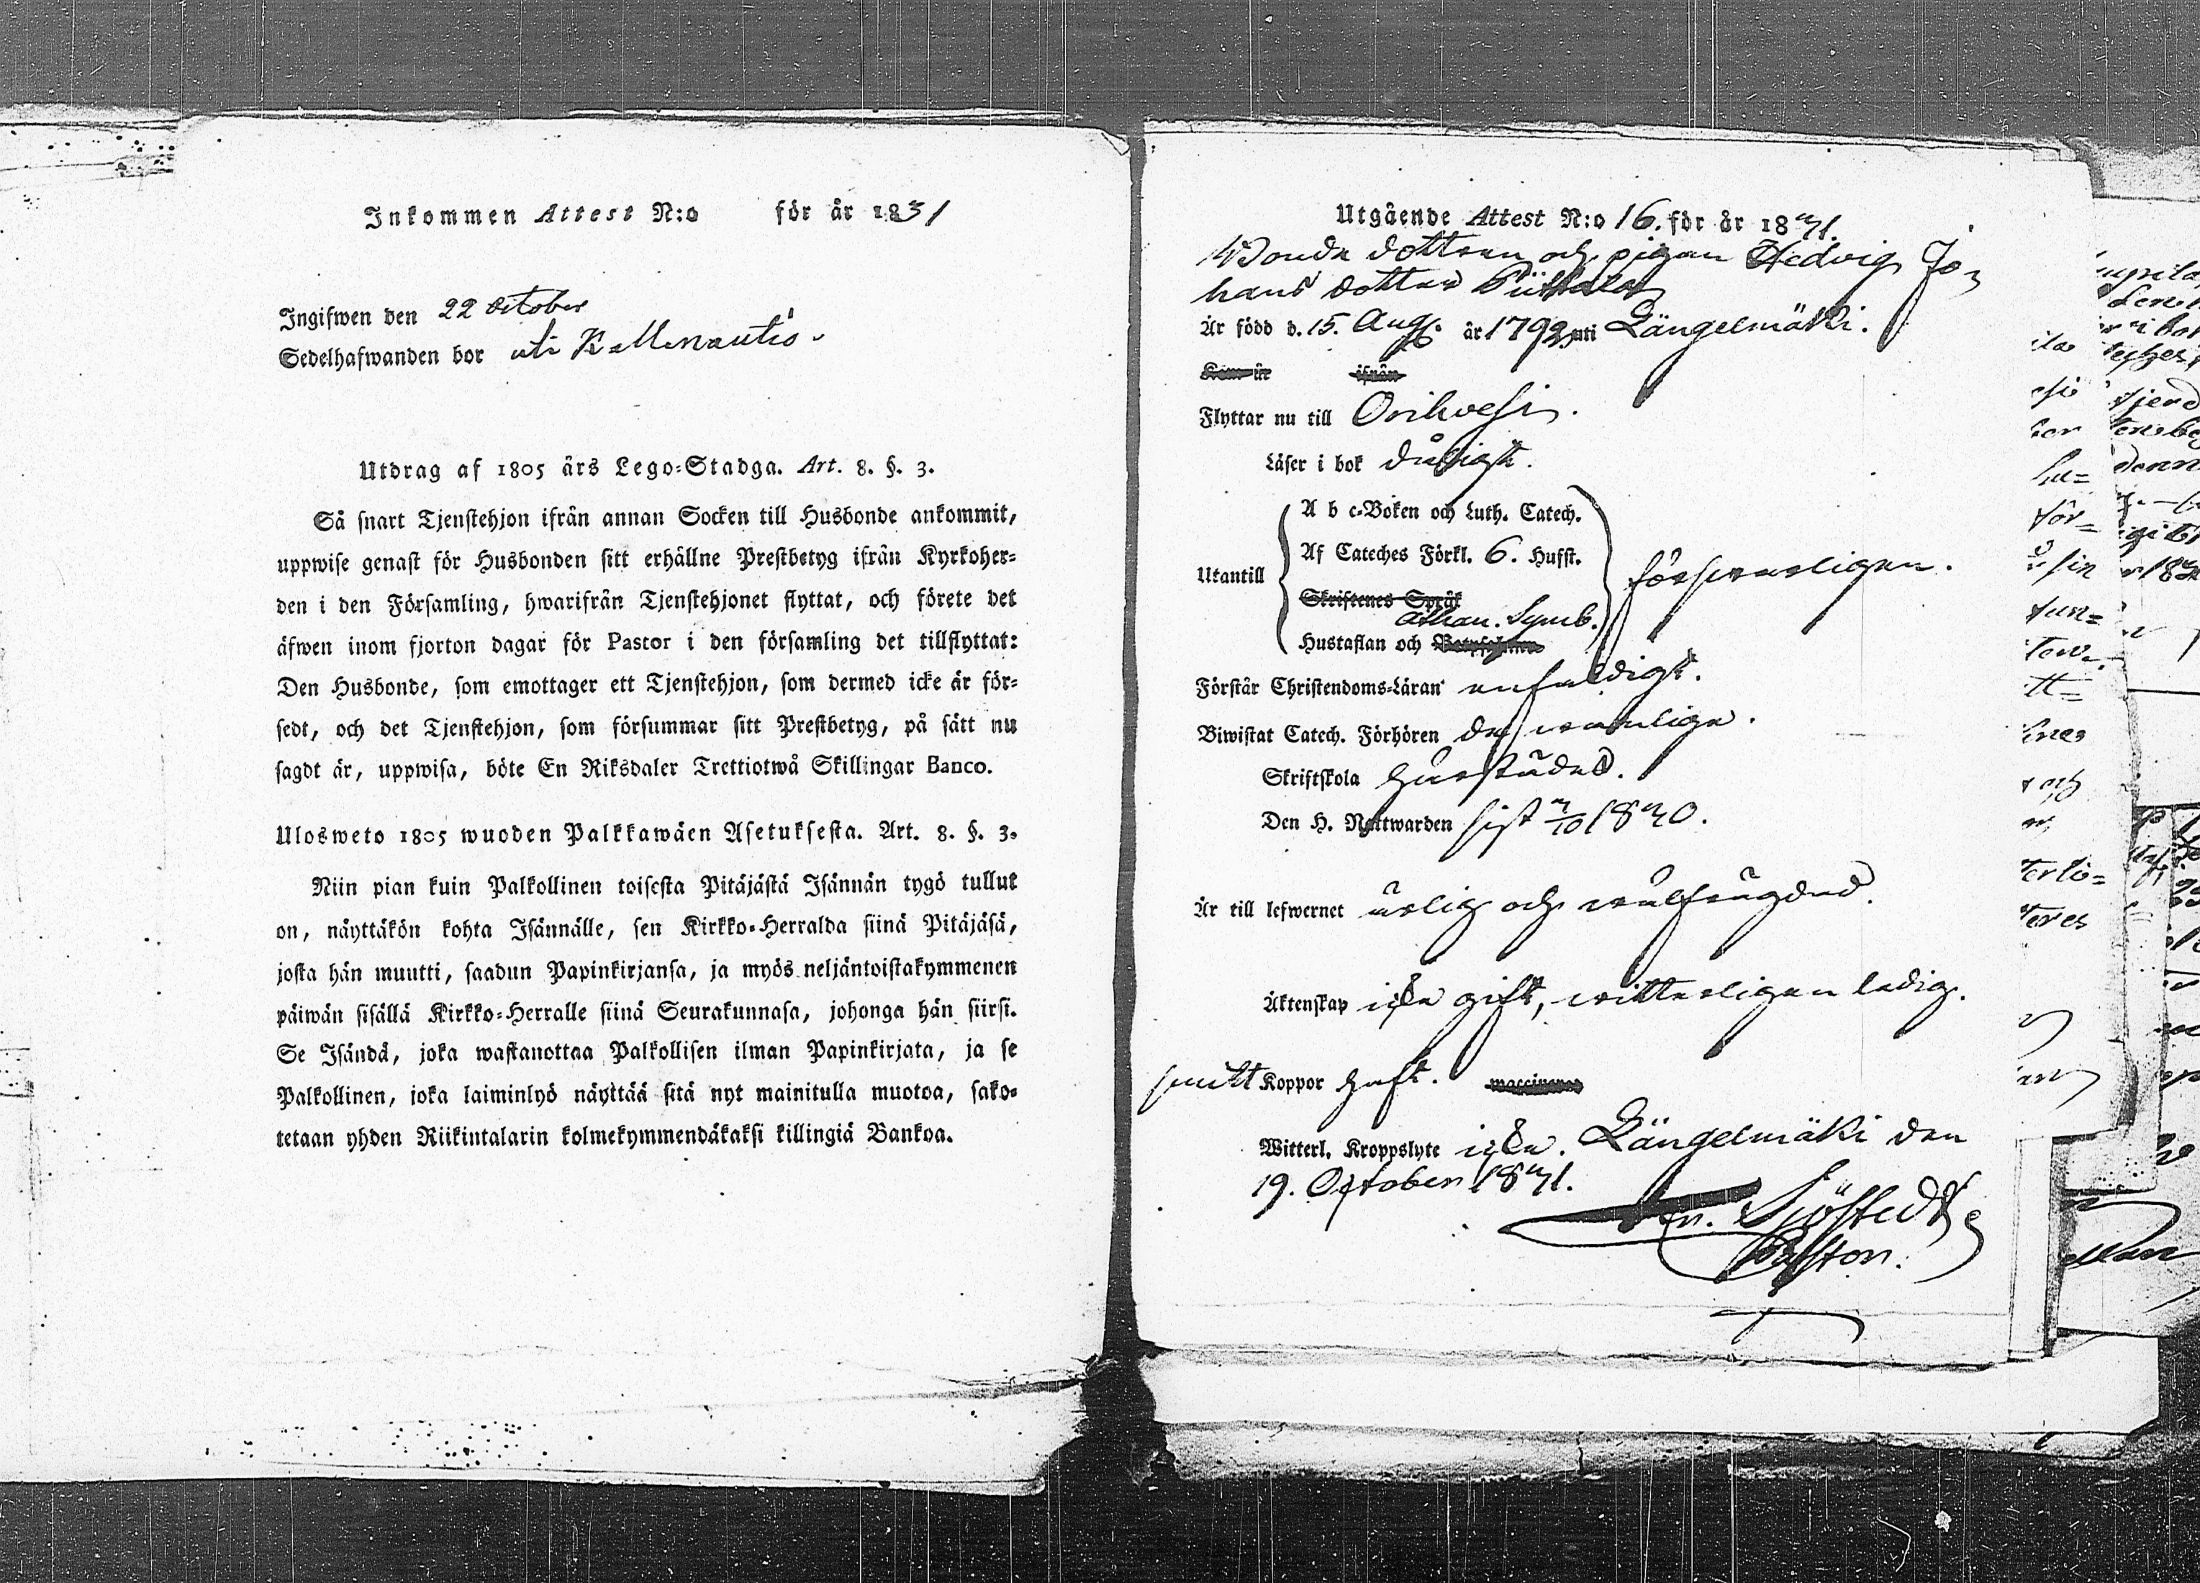 Inkommen Attest N:o för år 1831
Ingifwen den 22 October
Sedelhafwanden bor uti Kallenautio.
Utdrag af 1805 års Lego-Stadga. Art. 8. §. 3.
Så snart Tjenstehjon ifrån annan Socken till Husbonde ankommit,
uppwise genast för Husbonden sitt erhållne Prestbetyg ifrån Kyrkoher-
den i den Församling, hwarifrån Tjenstehjonet flyttat, och förete det
äfwen inom fjorton dagar för Pastor i den församling det tillflyttat:
Den Husbonde, som emottager ett Tjenstehjon, som dermed icke är för-
sedt, och det Tjenstehjon, som försummar sitt Prestbetyg, på sätt nu
sagdt är, uppwisa, böte En Riksdaler Trettiotwå Skillingar Banco.
Ulosweto 1805 wuoden Palkkawäen Asetuksesta. Art. 8. §. 3.
Niin pian kuin Palkollinen toisesta Pitäjästä Isännän tygö tullut
on, näyttäkön kohta Isännälle, sen Kirkko-Herralda siinä Pitäjäsä,
josta hän muutti, saadun Papinkirjansa, ja myös neljäntoistakymmenen
päiwän sisällä Kirkko-Herralle siinä Seurakunnasa, johonga hän siirsi.
Se Isändä, joka wastanottaa Palkollisen ilman Papinkirjata, ja se
Palkollinen, joka laiminlyö näyttää sitä nyt mainitulla muotoa, sako-
tetaan yhden Riikintalarin kolmekymmendäkaksi killingiä Bankoa.
Utgående Attest N:o 16. för år 1831.
Bonde dottren och pigan Hedvig Jo-
hans dotter
Är född d. 15. Aug. år 1792 uti Längelmäki.
ifrån
Flyttar nu till Orihvesi.
Läser i bok dåligt.
Utantill
A b c-Boken och Luth. Catech.
Af Cateches Förkl. 6. Hufst.
Skriftenes Språk
Athan. Symb.
Hustaflan och
försvarligen.
Förstår Christendoms-Läran enfaldigt.
Biwistat Catech. Förhören de vanliga.
Skriftskola
Den H. Nattwarden sist 3/10 1830.
Är till lefwernet ärlig och wälfrägdad.
Äktenskap icke gift, witterligen ledig.
smitt Koppor haft. vaccinerad
Witterl. Kroppslyte icke. Längelmäki den
19. October 1831.
Sjöstedt
Pastor.